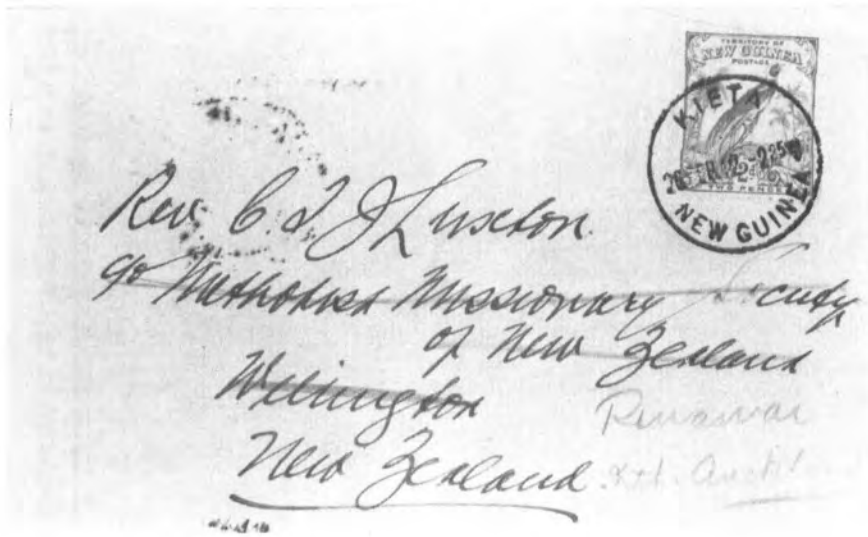 TERRITORY OF
NEW GUINEA
POSTAGE
KIETA
2d
TWO PENCE
NEW GUINEA
Rev. C. T. J Luxton.
c/o Methodist Missionary Society
of New Zealand
Wellington
New Zealand.